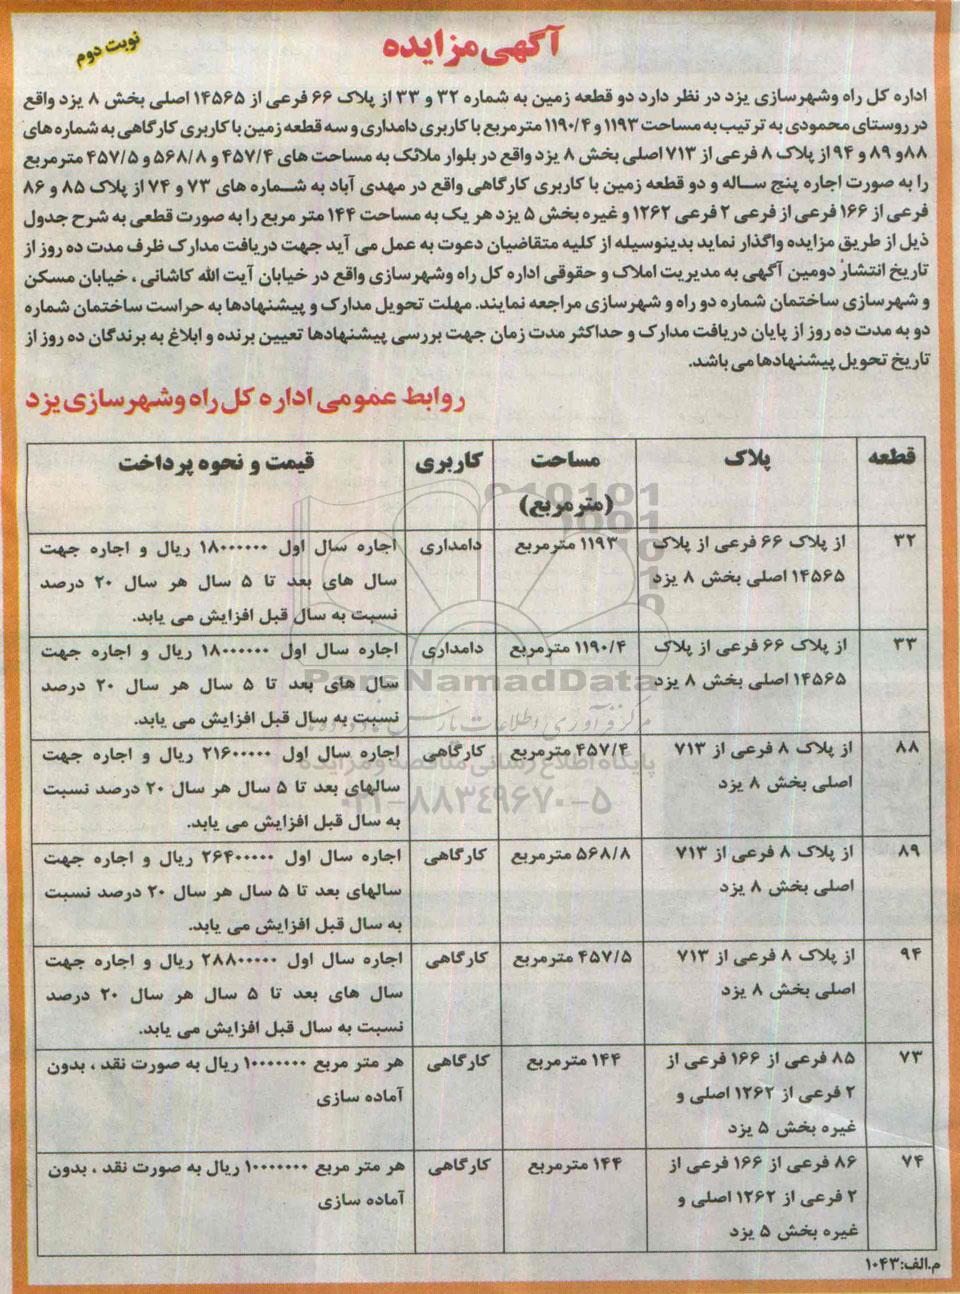 آگهی مزایده
نوبت دوم
اداره کل راه وشهرسازی یزد در نظر دارد دو قطعه زمین به شماره ۳۲ و ۳۳ از پلاک ۶۶ فرعی از ۱۴۵۶۵ اصلی بخش ۸ یزد واقع
در روستای محمودی به ترتیب به مساحت ۱۱۹۳ و ۱۱۹۰/۴ مترمربع با کاربری دامداری و سه قطعه زمین با کاربری کارگاهی به شماره های
۸۸ و ۸۹ و ۹۴ از پلاک ۸ فرعی از ۷۱۳ اصلی بخش ۸ یزد واقع در بلوار ملائک به مساحت های ۴۵۷/۴ و ۵۶۸/۸ و ۴۵۷/۵ مترمربع
را به صورت اجاره پنج ساله و دو قطعه زمین با کاربری کارگاهی واقع در مهدی آباد به شماره های ۷۳ و ۷۴ از پلاک ۸۵ و ۸۶
فرعی از ۱۶۶ فرعی از فرعی ۲ فرعی ۱۲۶۲ و غیره بخش ۵ یزد هر یک به مساحت ۱۴۴ متر مربع را به صورت قطعی به شرح جدول
ذیل از طریق مزایده واگذار نماید بدینوسیله از کلیه متقاضیان دعوت به عمل می آید جهت دریافت مدارک ظرف مدت ده روز از
تاریخ انتشار دومین آگهی به مدیریت املاک و حقوقی اداره کل راه وشهرسازی واقع در خیابان آیت الله کاشانی ، خیابان مسکن
و شهرسازی ساختمان شماره دو راه و شهرسازی مراجعه نمایند. مهلت تحویل مدارک و پیشنهادها به حراست ساختمان شماره
دو به مدت ده روز از پایان دریافت مدارک و حداکثر مدت زمان جهت بررسی پیشنهادها تعیین برنده و ابلاغ به برندگان ده روز از
تاریخ تحویل پیشنهادها می باشد.
روابط عمومی اداره کل راه وشهرسازی یزد
قطعه پلاک مساحت کاربری قیمت و نحوه پرداخت
(مترمربع)
۳۲ از پلاک ۶۶ فرعی از پلاک ۱۱۹۳ مترمربع دامداری اجاره سال اول ۱۸۰۰۰۰۰۰ ریال و اجاره جهت
۱۴۵۶۵ اصلی بخش ۸ یزد سال های بعد تا ۵ سال هر سال ۲۰ درصد
نسبت به سال قبل افزایش می یابد.
۳۳ از پلاک ۶۶ فرعی از پلاک ۱۱۹۰/۴ مترمربع دامداری اجاره سال اول ۱۸۰۰۰۰۰۰ ریال و اجاره جهت
۱۴۵۶۵ اصلی بخش ۸ یزد سال های بعد تا ۵ سال هر سال ۲۰ درصد
نسبت به سال قبل افزایش می یابد.
۸۸ از پلاک ۸ فرعی از ۷۱۳ ۴۵۷/۴ مترمربع کارگاهی اجاره سال اول ۲۱۶۰۰۰۰۰ ریال و اجاره جهت
اصلی بخش ۸ یزد سالهای بعد تا ۵ سال هر سال ۲۰ درصد نسبت
به سال قبل افزایش می یابد.
۸۹ از پلاک ۸ فرعی از ۷۱۳ ۵۶۸/۸ مترمربع کارگاهی اجاره سال اول ۲۶۴۰۰۰۰۰ ریال و اجاره جهت
اصلی بخش ۸ یزد سالهای بعد تا ۵ سال هر سال ۲۰ درصد نسبت
به سال قبل افزایش می یابد.
۹۴ از پلاک ۸ فرعی از ۷۱۳ ۴۵۷/۵ مترمربع کارگاهی اجاره سال اول ۲۸۸۰۰۰۰۰ ریال و اجاره جهت
اصلی بخش ۸ یزد سال های بعد تا ۵ سال هر سال ۲۰ درصد
نسبت به سال قبل افزایش می یابد.
۷۳ ۸۵ فرعی از ۱۶۶ فرعی از ۱۴۴ مترمربع کارگاهی هر متر مربع ۱۰۰۰۰۰۰۰ ریال به صورت نقد ، بدون
۲ فرعی از ۱۲۶۲ اصلی و آماده سازی
غیره بخش ۵ یزد
۷۴ ۸۶ فرعی از ۱۶۶ فرعی از ۱۴۴ مترمربع کارگاهی هر متر مربع ۱۰۰۰۰۰۰۰ ریال به صورت نقد ، بدون
۲ فرعی از ۱۲۶۲ اصلی و آماده سازی
غیره بخش ۵ یزد
م.الف:۱۰۴۳
NamadData
پایگاه اطلاع رسانی مناقصه و مزایده
۰۲۱-۸۸۳۴۹۶۷۰-۵